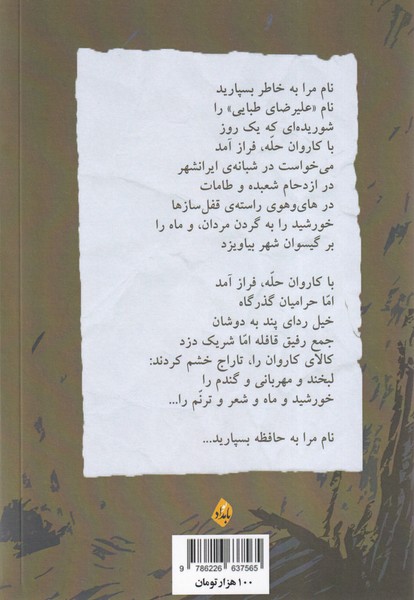 نام مرا به خاطر بسپارید
نام «علیرضای طبایی» را
شوریده‌ای که یک روز
با کاروان حلّه، فراز آمد
می‌خواست در شبانه‌ی ایرانشهر
در ازدحام شعبده و طامات
در های‌وهوی راسته‌ی قفل‌سازها
خورشید را به گردن مردان، و ماه را
بر گیسوان شهر بیاویزد
با کاروان حلّه، فراز آمد
امّا حرامیان گذرگاه
خیل ردای پند به دوشان
جمع رفیق قافله امّا شریک دزد
کالای کاروان را، تاراج خشم کردند:
لبخند و مهربانی و گندم را
خورشید و ماه و شعر و ترنّم را...
نام مرا به حافظه بسپارید...
بامداد
9 786226 637565
۱۰۰ هزار تومان